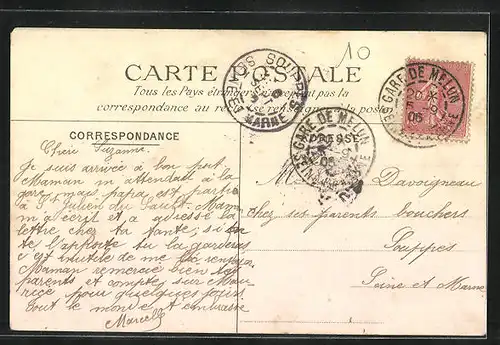 10
CARTE POSTALE
Tous les Pays étrangers n'acceptent pas la
correspondance au recto se renseigner à la poste
GARE DE MELUN
GARE DE MELUN
SOUPPES
SEINE ET MARNE
CORRESPONDANCE
Chère Suzanne.
Je suis arrivée à bon port.
Maman m'attendait à la
gare mais papa est partie
à St Julien du Sault. Mam
m'a écrit et a adressé la
lettre chez ta tante, si on
te l'apporte tu la garderas
c'est inutile de me la renvoyer
Maman remercie bien tes
parents et compte sur Mau
rice pour quelques jours.
tout le monde et embrasse
Marcelle
M Davoigneau
chez ses parents bouchers
Souppes
Seine et Marne